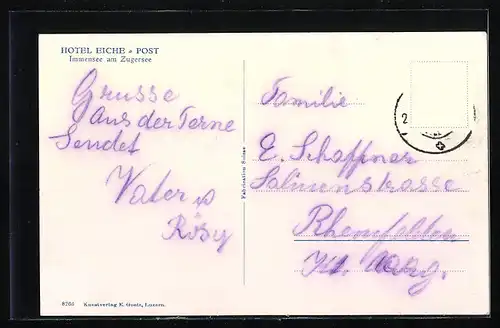 HOTEL EICHE - POST
Immensee am Zugersee
Grüsse
aus der Ferne
Sendet
Vater u
Rösy
Familie
E. Schaffner
Salinenstrasse
Rheinfelden
Kt. Aarg.
2
Fabrication Suisse
8766 Kunstverlag E. Goetz, Luzern.